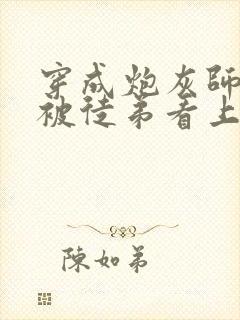 穿成炮灰師
被徒弟看上
陳如弟